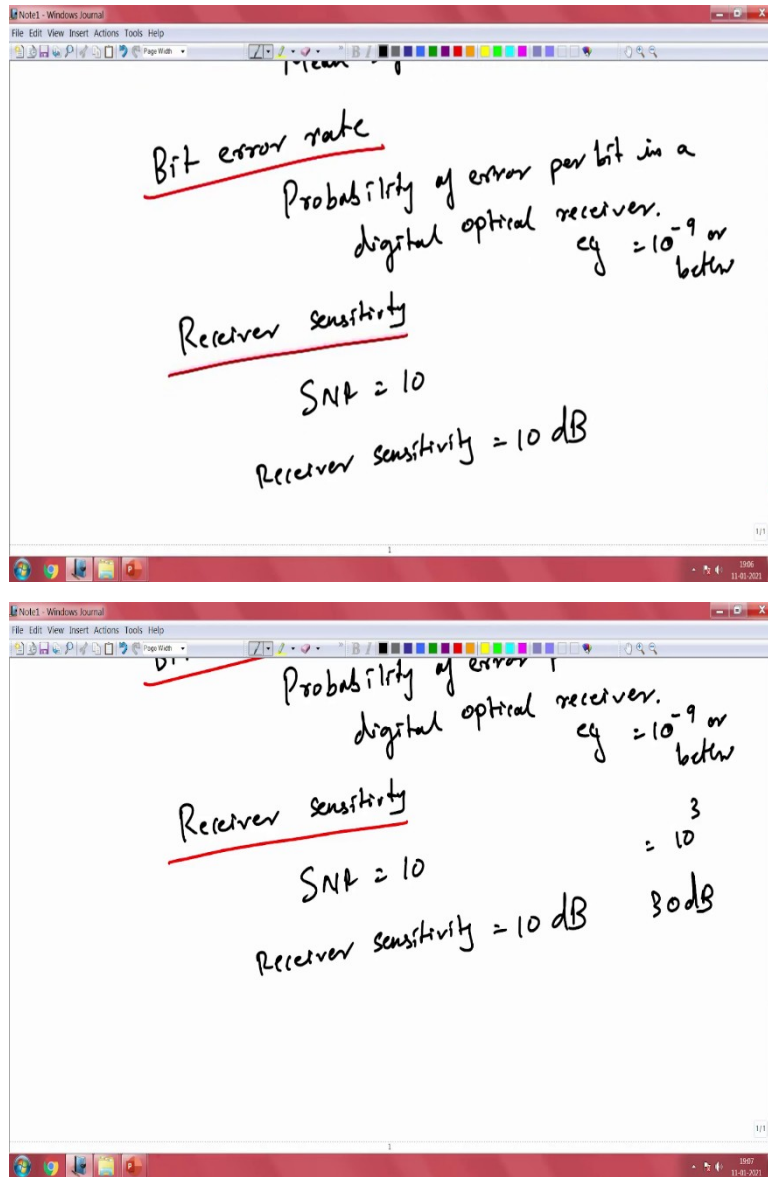 Note1 - Windows Journal
File Edit View Insert Actions Tools Help
Page Width
B I
Mean
Bit error rate
Probability of error per bit in a
digital optical receiver.
eg = 10^-9 or
better
Receiver sensitivity
SNR = 10
Receiver sensitivity = 10 dB
1/1
1
19:06
11-01-2021
Note1 - Windows Journal
File Edit View Insert Actions Tools Help
Page Width
B I
Bit
Probability of error
digital optical receiver.
eg = 10^-9 or
better
Receiver sensitivity
= 10^3
SNR = 10
30 dB
Receiver sensitivity = 10 dB
1/1
1
19:07
11-01-2021